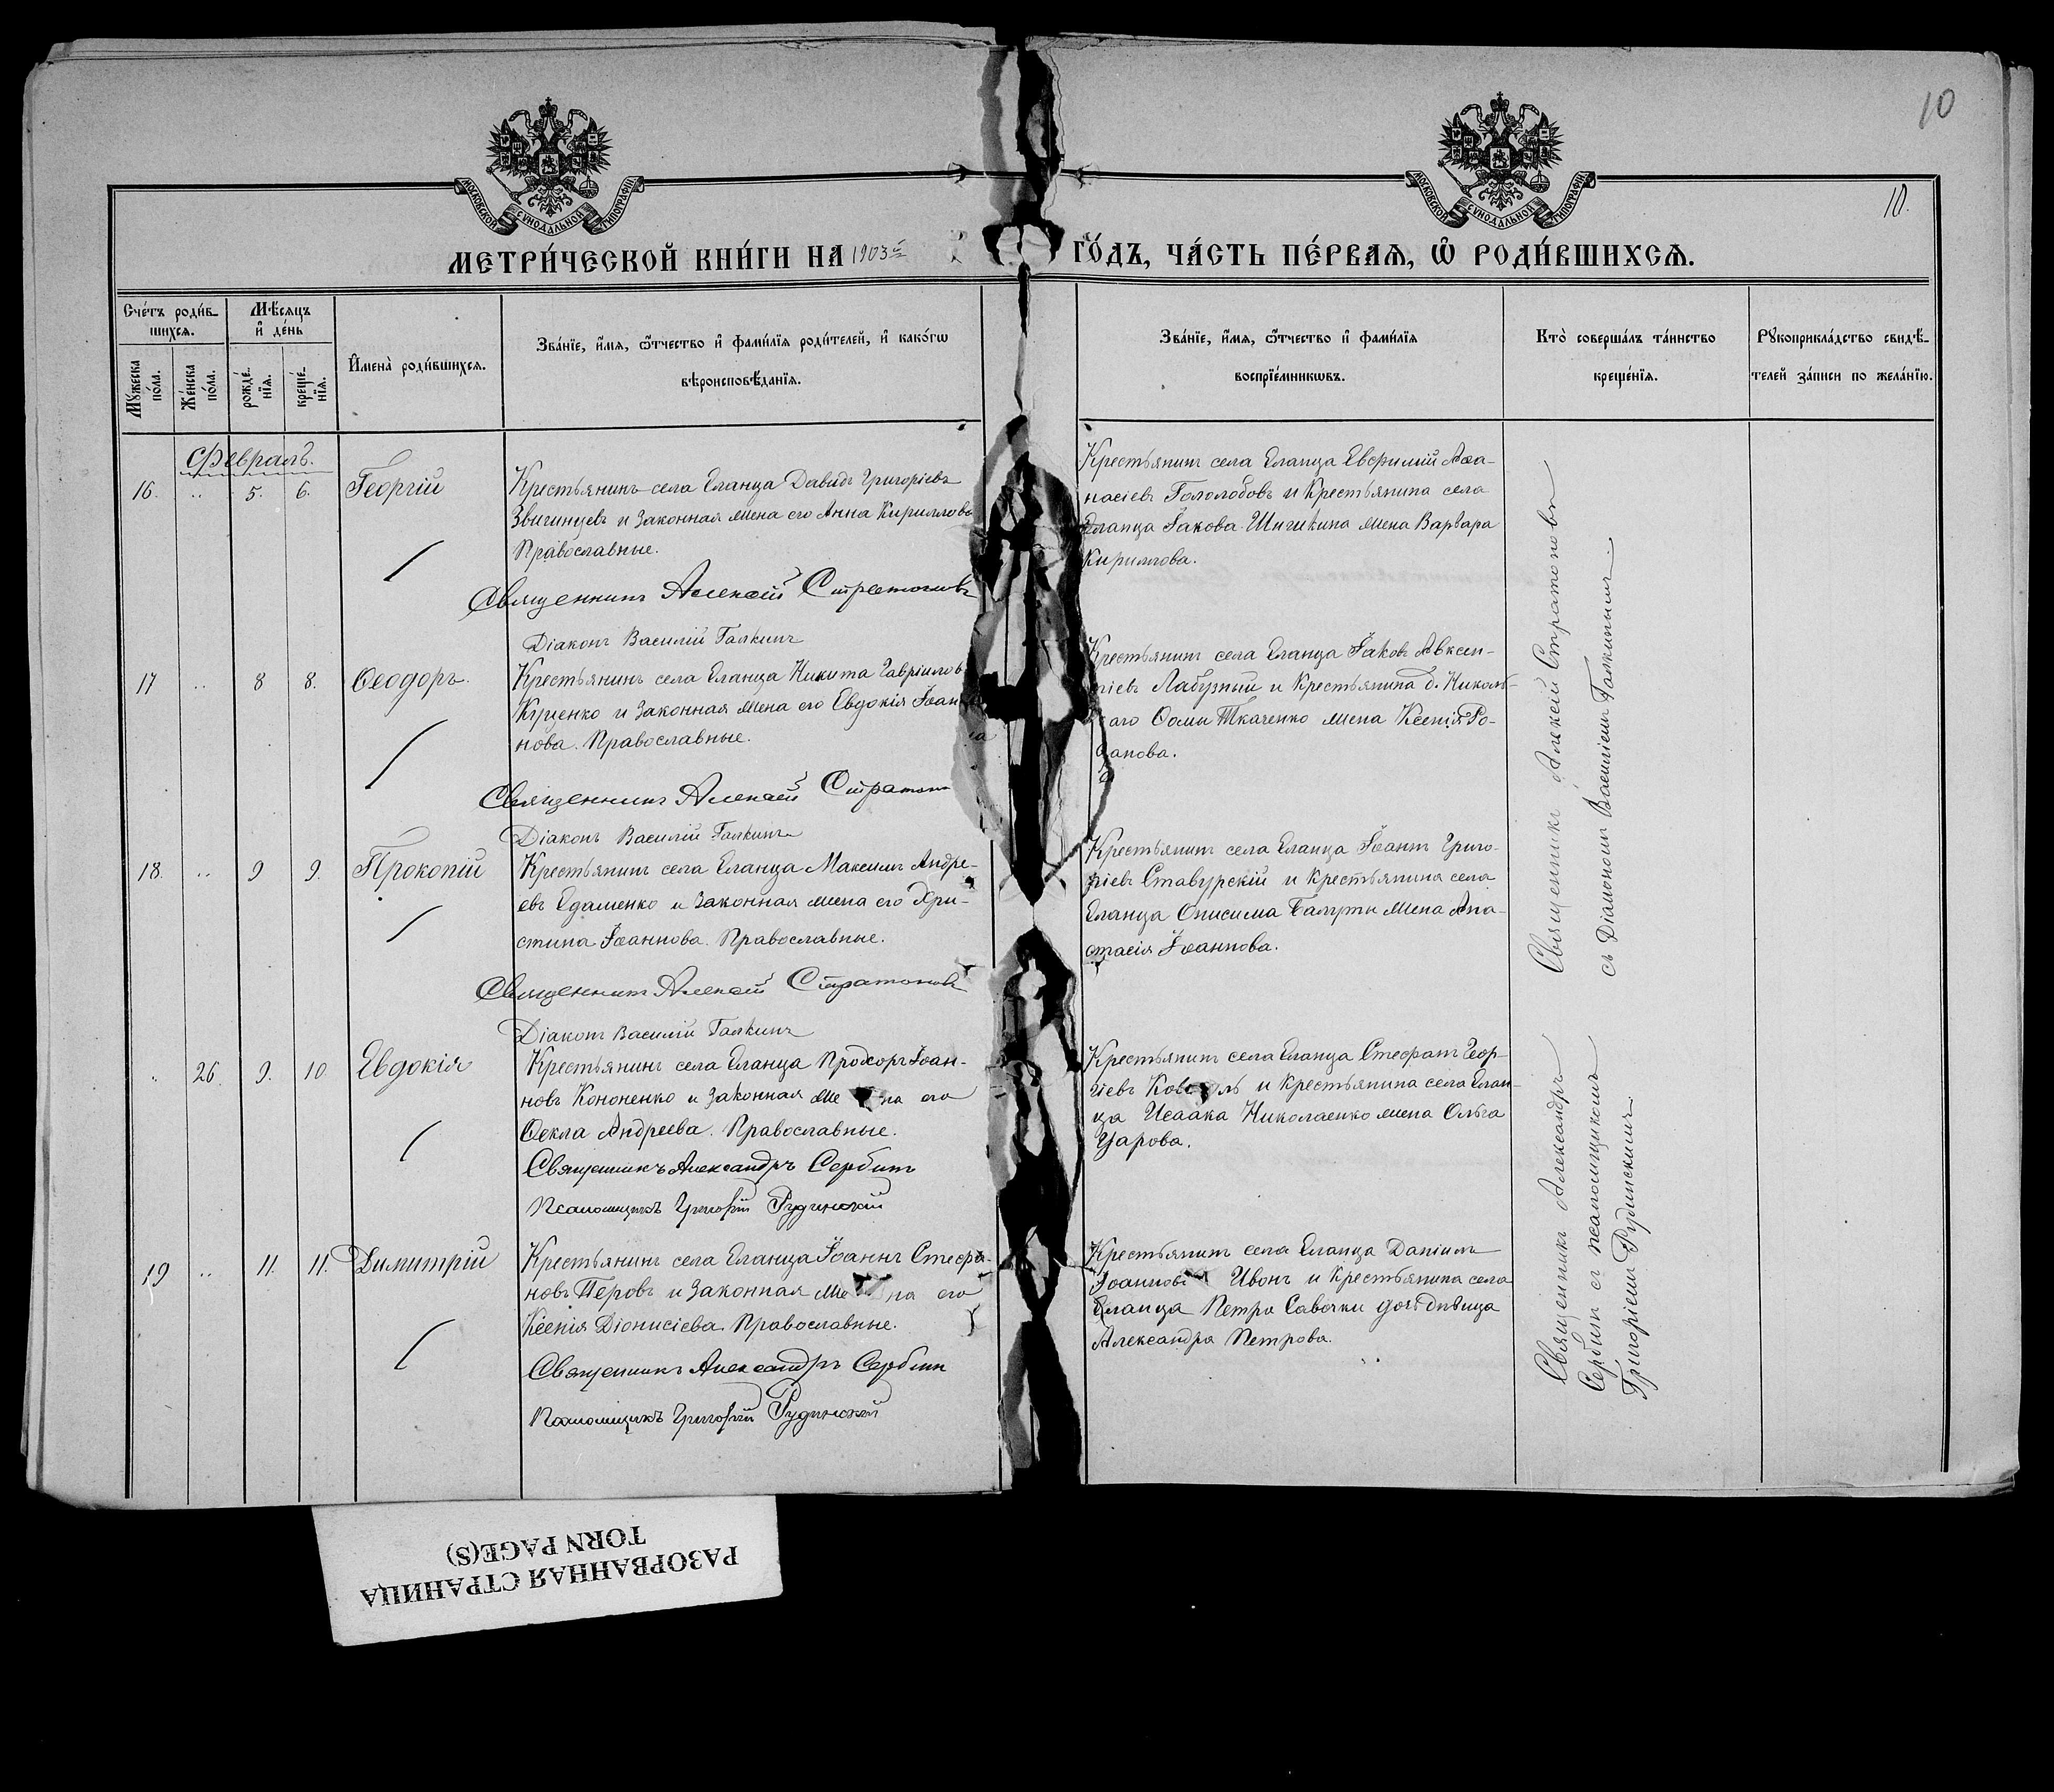 10
10.
МОСКОВСКОЙ СѴНОДАЛЬНОЙ ТИПОГРАФІИ
МОСКОВСКОЙ СѴНОДАЛЬНОЙ ТИПОГРАФІИ
МЕТРИ́ЧЕСКОЙ КНИ́ГИ НА 1903й ГО́ДЪ, ЧА́СТЬ ПЕ́РВАѦ, Ѡ҆ РОДИ́ВШИХСѦ.
Сче́тъ роди́в-
шихсѧ.
Мꙋ́жеска
по́ла.
Же́нска
по́ла.
Мѣ́сѧцъ
и҆ де́нь
рожде́-
нїѧ.
креще́-
нїѧ.
И҆мена̀ роди́вшихсѧ.
Зва́нїе, и҆́мѧ, ѻ҆́тчество и҆ фами́лїѧ роди́телей, и҆ како́гѡ
вѣроисповѣ́данїѧ.
Зва́нїе, и҆́мѧ, ѻ҆́тчество и҆ фами́лїѧ
воспрїе́мникѡвъ.
Кто̀ соверша́лъ та́инство
креще́нїѧ.
Рꙋкоприкла́дство свидѣ́-
телей за́писи по жела́нїю.
Февраль.
16. .. 5. 6. Георгій
Крестьянинъ села Еланца Давидъ Григоріевъ
Звигинцевъ и законная жена его Анна Кириллова
Православные.
Священникъ Алексѣй Стратоновъ
Діаконъ Василій Галкинъ
Крестьянинъ села Еланца Евфимій Аѳа-
насіевъ Гололобовъ и Крестьянина села
Еланца Іакова Шигикина жена Варвара
Кириллова.
17 .. 8 8. Ѳеодоръ.
Крестьянинъ села Еланца Никита Гавріиловъ
Куценко и законная жена его Евдокія Іоан-
нова. Православные.
Священникъ Алексѣй Стратон
Діаконъ Василій Галкинъ
Крестьянинъ села Еланца Іаковъ Авксен-
тіевъ Лабузный и Крестьянина д. Николь-
каго Ѳомы Ткаченко жена Ксенія Ро-
манова.
18. .. 9 9. Прокопій
Крестьянинъ села Еланца Максимъ Андре-
евъ Едаменко и законная жена его Хри-
стина Іоаннова. Православные.
Священникъ Алексѣй Стратоновъ
Діаконъ Василій Галкинъ
Крестьянинъ села Еланца Іоаннъ Григо-
ріевъ Ставурскій и Крестьянина села
Еланца Онисима Балуты жена Ана-
стасія Іоаннова.
Священникъ Алексѣй Стратоновъ
съ Діакономъ Василіемъ Галкинымъ.
.. 26. 9. 10 Евдокія
Крестьянинъ села Еланца Прохоръ Іоан-
новъ Кононенко и законная же на его
Ѳекла Андреева. Православные.
Священникъ Александръ Сербинъ
Псаломщикъ Григорій Рудинскій
Крестьянинъ села Еланца Стефанъ Геор-
гіевъ Ков ль и Крестьянина села Елан-
ца Исаака Николаенко жена Ольга
Уарова.
19 .. 11. 11. Димитрій
Крестьянинъ села Еланца Іоаннъ Стефа-
новъ Перовъ и законная же на его
Ксенія Діонисіева. Православные.
Священникъ Александръ Сербинъ
Псаломщикъ Григорій Рудинскій
Крестьянинъ села Еланца Даніилъ
Іоанновъ Ивонъ и Крестьянина села
Еланца Петра Савочки дочь дѣвица
Александра Петрова.
Священникъ Александръ
Сербинъ съ псаломщикомъ
Григоріемъ Рудинскимъ
РАЗОРВАННАЯ СТРАНИЦА
TORN PAGE(S)